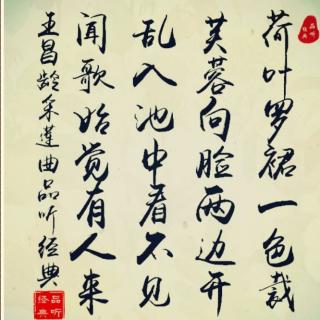 荷叶罗裙一色裁
芙蓉向脸两边开
乱入池中看不见
闻歌始觉有人来
王昌龄采莲曲品听经典
品听
经典
品听
经典